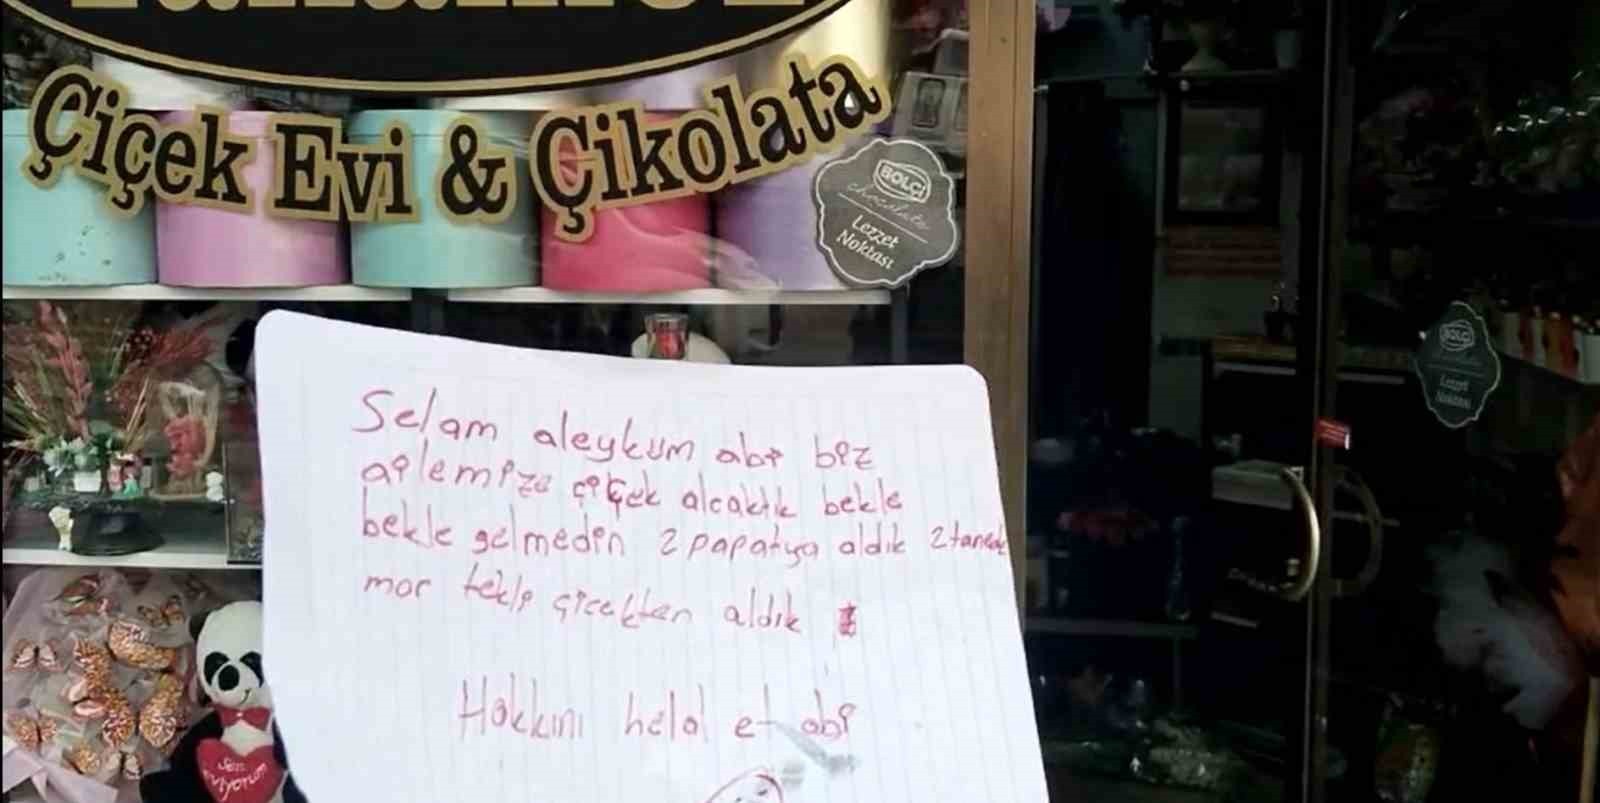 Çiçek Evi & Çikolata
BOLÇİ
chocolate
Lezzet
Noktası
BOLÇİ
Lezzet
Noktası
Selam aleykum abi biz
ailemize çiçek alcaktık bekle
bekle gelmedin 2 papatya aldık 2 tanede
mor tekli çicekten aldık
Hakkını helal et abi
Seni
Seviyorum